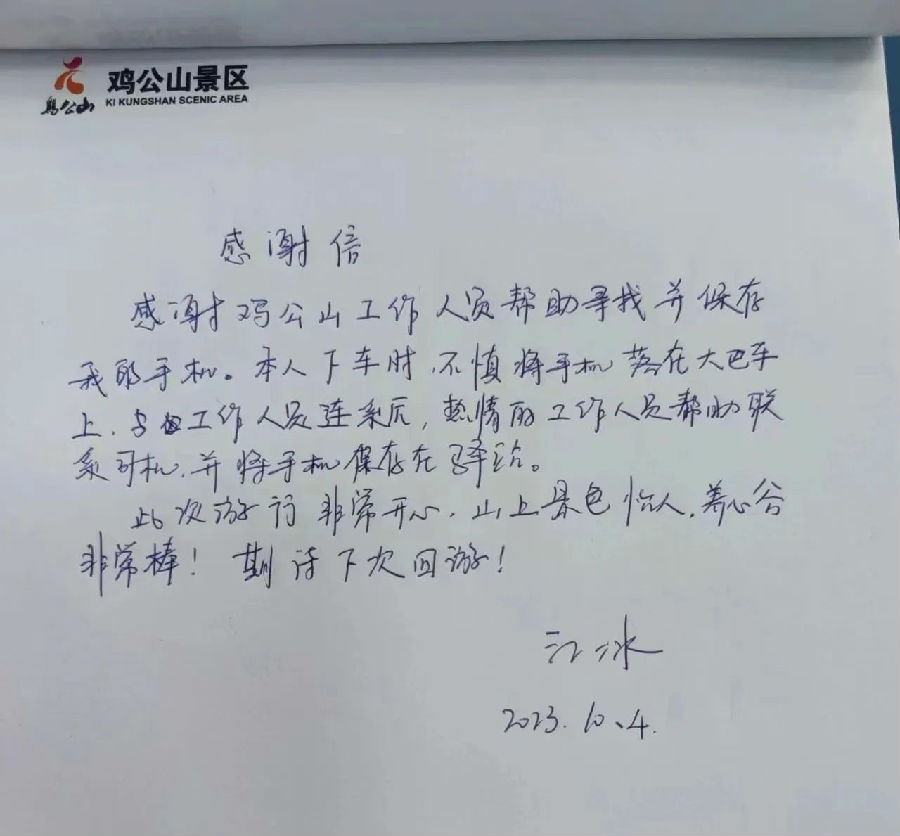 鸡公山
鸡公山景区
KI KUNGSHAN SCENIC AREA
感谢信
感谢鸡公山工作人员帮助寻找并保存
我的手机。本人下车时,不慎将手机落在大巴车
上,与工作人员连系后,热情的工作人员帮助联
系司机,并将手机保存在驿站。
此次游行非常开心,山上景色怡人,养心谷
非常棒!期待下次回游!
江冰
2023.10.4.